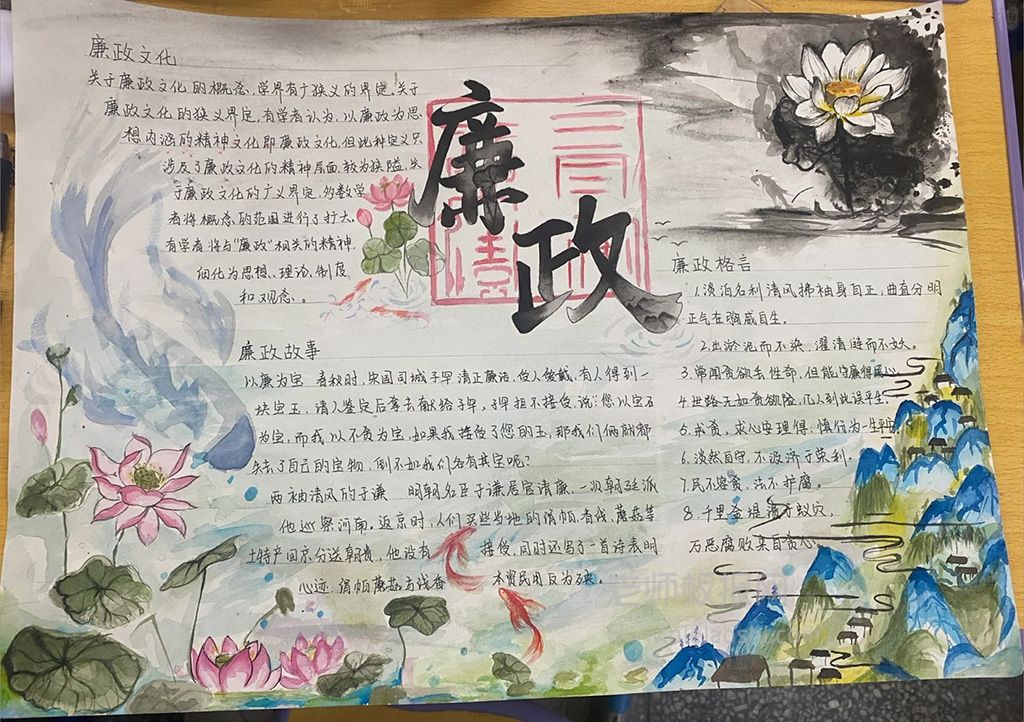 廉政文化
关于廉政文化的概念,学界有广狭义的界定。关于
廉政文化的狭义界定,有学者认为,以廉政为思
想内涵的精神文化即廉政文化,但此种定义只
涉及了廉政文化的精神层面,较为狭隘,关
于廉政文化的广义界定,多数学
者将概念的范围进行了扩大,
有学者将与"廉政"相关的精神
细化为思想、理论、制度
和观念。
廉政
廉政故事
以廉为宝 春秋时,宋国司城子罕清正廉洁,受人爱戴,有人得到一
块宝玉,请人鉴定后拿去献给子罕,子罕拒不接受,说:您以宝石
为宝,而我以不贪为宝,如果我接受了您的玉,那我们俩就都
失去了自己的宝物,倒不如我们各有其宝呢?
两袖清风的于谦 明朝名臣于谦居官清廉,一次朝廷派
他巡察河南。返京时,人们买些当地的绢帕、香线、蘑菇等
土特产回京分送朝贵,他没有 接受,同时还写了一首诗表明
心迹:绢帕蘑菇与线香 本资民用反为殃。
廉政格言
1.淡泊名利清风拂袖身自正,曲直分明
正气在胸威自生。
2.出淤泥而不染,濯清涟而不妖。
3.常闻贪欲丢性命,但能守廉得民心
4.世路无如贪欲险,几人到此误平生
5.戒贪,求心安理得;慎行为一生平安
6.淡然自守,不汲汲于荣利。
7.民不容贪,法不护腐。
8.千里金堤溃于蚁穴,
万恶腐败来自贪心